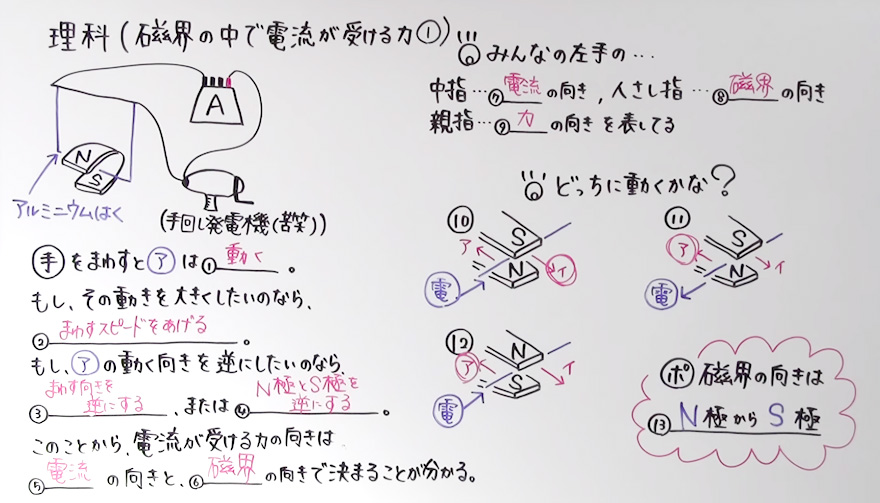 理科(磁界の中で電流が受ける力①)
A
N
S
アルミニウムはく
(手回し発電機(苦笑))
手をまわすとアは①動く。
もし、その動きを大きくしたいのなら、
②まわすスピードをあげる。
もし、アの動く向きを逆にしたいのなら、
③まわす向きを逆にする、または④N極とS極を逆にする。
このことから、電流が受ける力の向きは
⑤電流の向きと、⑥磁界の向きで決まることが分かる。
みんなの左手の…
中指…⑦電流の向き,人さし指…⑧磁界の向き
親指…⑨力の向きを表してる
どっちに動くかな?
⑩
S
N
ア
イ
電
⑪
S
N
ア
イ
電
⑫
N
S
ア
イ
電
ポ 磁界の向きは
⑬N極からS極